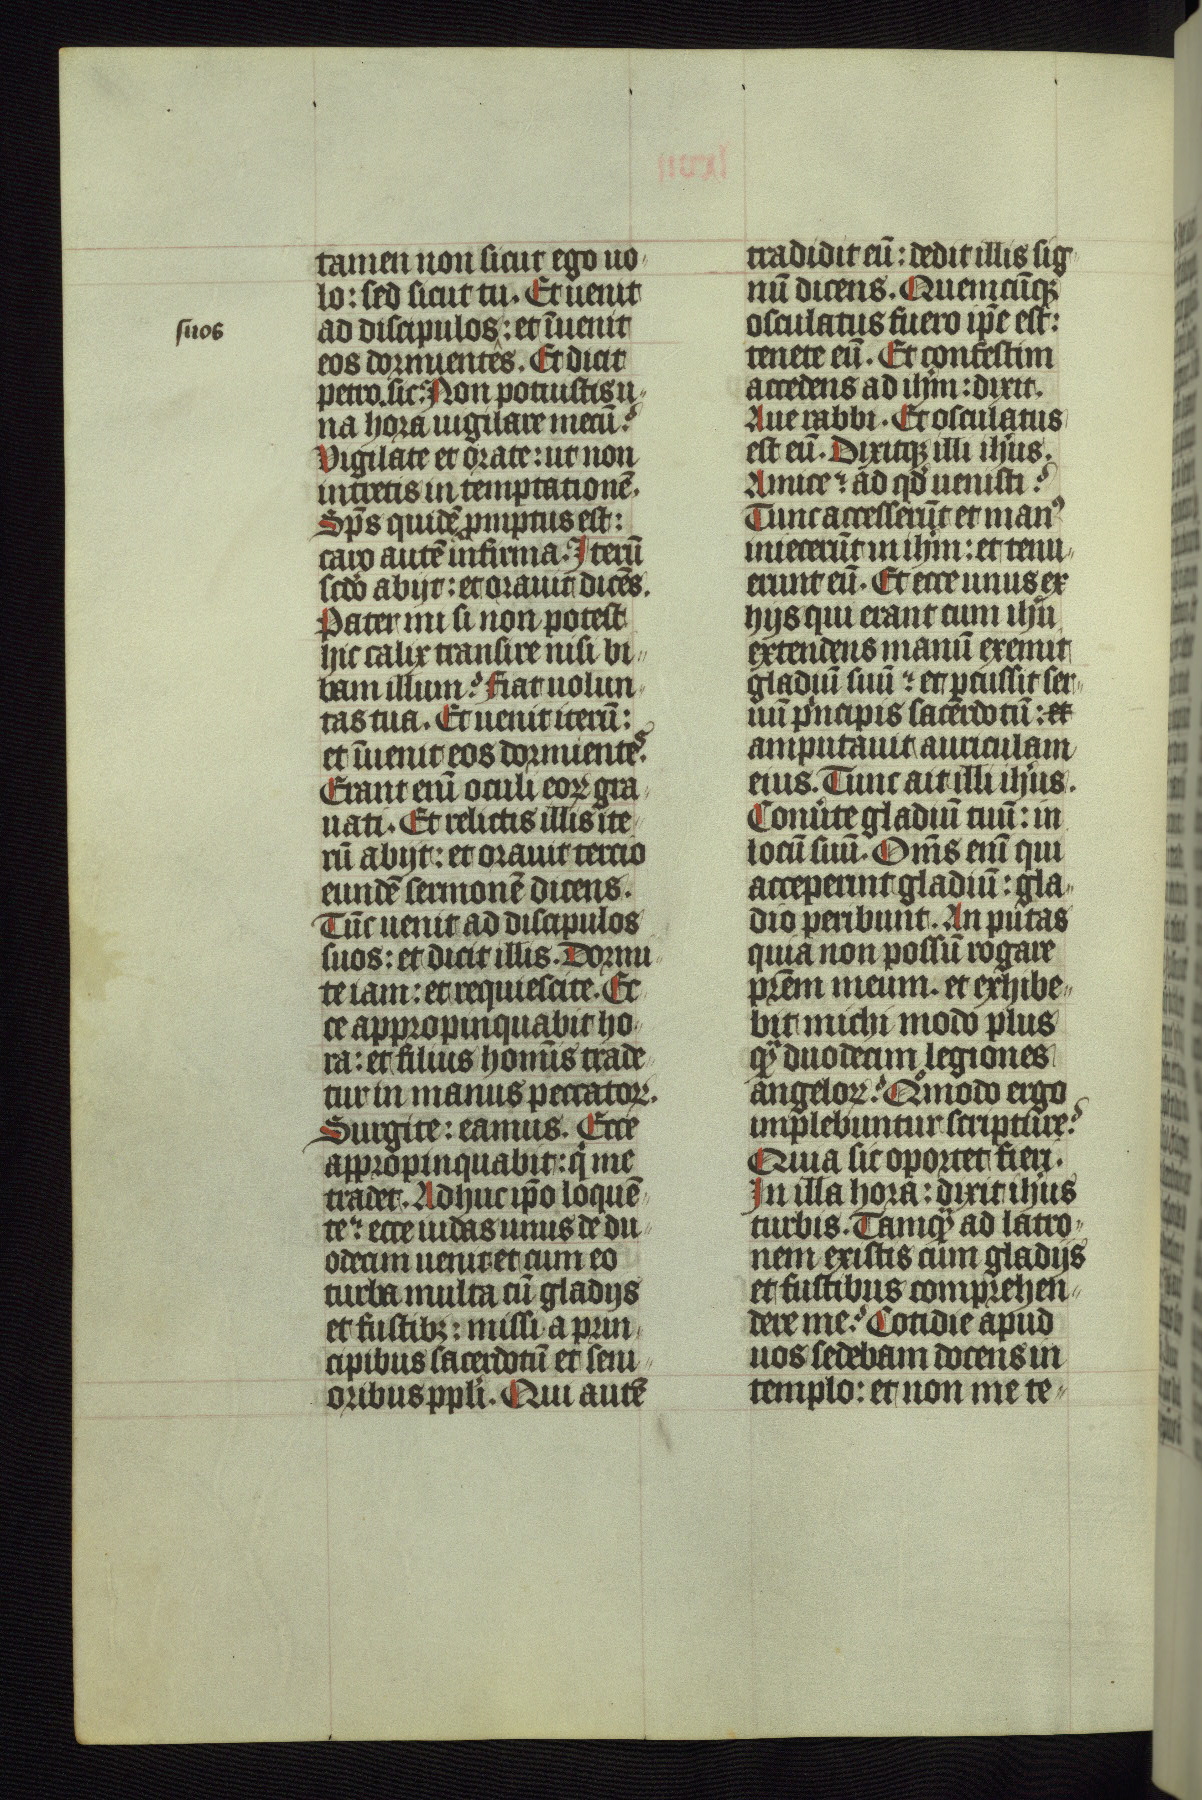 suos
tamen non sicut ego uo„
lo: sed sicut tu. Et uenit
ad discipulos: et īuenit
eos dormientes. Et dicit
petro. sic? Non potuistis u„
na hora uigilare mecū?
Vigilate et orate: ut non
intretis in temptationē.
Sp̄s quidē ꝓmptus est:
caro autē infirma. Iterū
scd̄o abijt: et orauit dicēs.
Pater mi si non potest
hic calix transire nisi bi„
bam illum? fiat uolun„
tas tua. Et uenit iterū:
et īuenit eos dormientes.
Erant eni̅ oculi eoꝝ gra„
uati. Et relictis illis ite„
rū abijt: et orauit tercio
eundē sermonē dicens.
Tūc uenit ad discipulos
suos: et dicit illis. Dormi„
te iam: et requiescite. Ec„
ce appropinquabit ho„
ra: et filius homīs trade„
tur in manus peccatoꝝ.
Surgite: eamus. Ecce
appropinquabit: qͥ me
tradet. Adhuc ip̄o loquē„
te: ecce iudas unus de du„
odecim uenit et cum eo
turba multa cū gladijs
et fustibꝫ: missi a prin„
cipibus sacerdotū et seni„
oribus ppl̄i. Qui autē
tradidit eū: dedit illis sig„
nū dicens. Quemcūqꝫ
osculatus fuero ip̄e est:
tenete eū. Et confestim
accedens ad ih̄m: dixit.
Aue rabbi. Et osculatus
est eū. Dixitqꝫ illi ih̄us.
Amice: ad qd̄ uenisti?
Tunc accesserūt et manꝰ
iniecerūt in ih̄m: et tenu„
erunt eū. Et ecce unus ex
hijs qui erant cum ih̄u
extendens manū exemit
gladiū suū: et ꝑcussit ser„
uū pͥncipis sacerdotū: et
amputauit auriculam
eius. Tunc ait illi ih̄us.
Conūte gladiū tuū: in
locū suū. Om̄s eni̅ qui
acceperint gladiū: gla„
dio peribunt. An putas
quia non possū rogare
pr̄em meum. et exhibe„
bit michi modo plus
qͣꝫ duodecim legiones
angeloꝝ? Qͦmodo ergo
implebuntur scripture?
Quia sic oportet fieri.
In illa hora: dixit ih̄us
turbis. Tamqͣꝫ ad latro„
nem existis cum gladijs
et fustibus comprehen„
dere me? Cotidie apud
uos sedebam docens in
templo: et non me te„